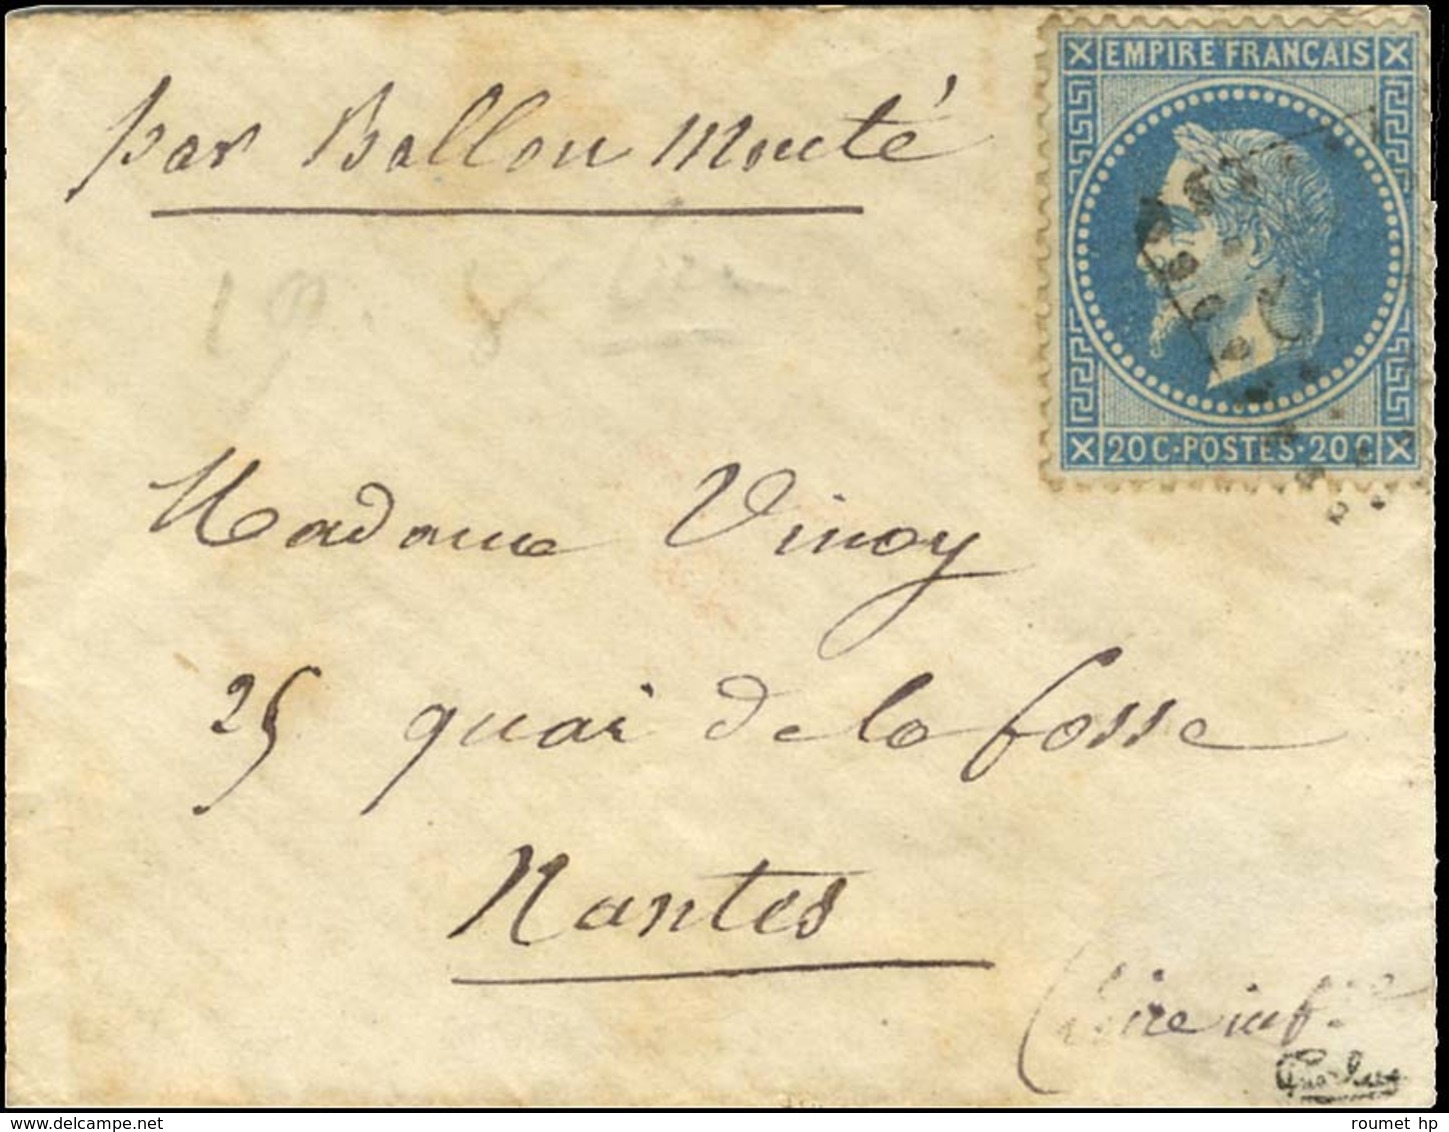 par Ballon Monté
EMPIRE FRANÇAIS
20 C·POSTES·20 C
Madame Vinoy
25 quai de la fosse
Nantes
(Loire infre
roumet hp